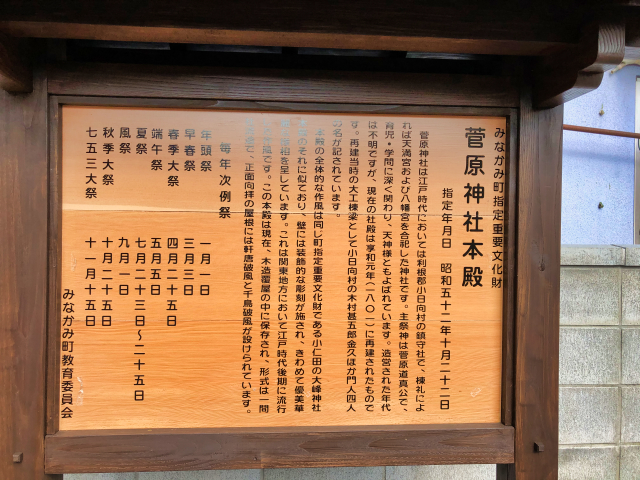 みなかみ町指定重要文化財
菅原神社本殿
指定年月日　昭和五十二年十月二十二日
菅原神社は江戸時代においては利根郡小日向村の鎮守社で、棟札によ
れば天満宮および八幡宮を合祀した神社です。主祭神は菅原道真公で、
育児・学問に深く関わり、天神様ともよばれています。造営された年代
は不明ですが、現在の社殿は享和元年（一八〇一）に再建されたもので
す。再建当時の大工棟梁として小日向村の木村甚五郎金久ほか門人四人
の名が記されています。
本殿の全体的な作風は同じ町指定重要文化財である小仁田の大峰神社
のそれに似ており、壁には装飾的な彫刻が施され、きわめて優美華
を呈しています。これは関東地方において江戸時代後期に流行
風です。この本殿は現在、木造覆屋の中に保存され、形式は一間
で、正面向拝の屋根には軒唐破風と千鳥破風が設けられています。
毎年次例祭
年頭祭　一月一日
早春祭　三月三日
春季大祭　四月二十五日
端午祭　五月五日
夏祭　七月二十三日～二十五日
風祭　九月一日
秋季大祭　十月二十五日
七五三大祭　十一月十五日
みなかみ町教育委員会